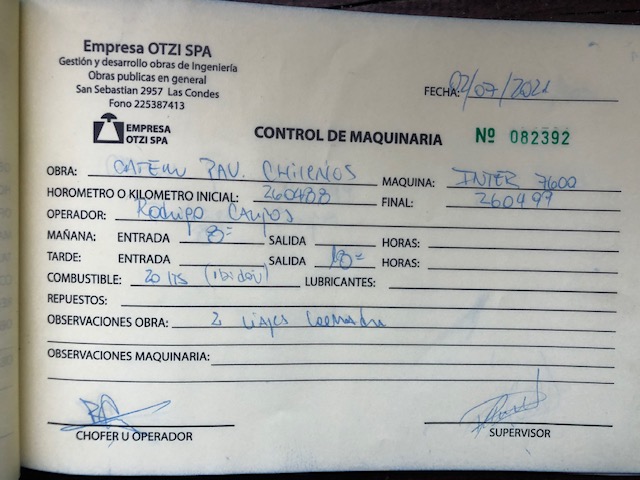 Empresa OTZI SPA
Gestión y desarrollo obras de Ingeniería
Obras publicas en general
San Sebastian 2957 Las Condes
Fono 225387413
FECHA: /07/2021
EMPRESA
OTZI SPA
CONTROL DE MAQUINARIA Nº 082392
OBRA: PAV. CHILENOS MAQUINA: INTER 7600
HOROMETRO O KILOMETRO INICIAL: 260488 FINAL: 260497
OPERADOR: Rodrigo Campos
MAÑANA: ENTRADA 8= SALIDA HORAS:
TARDE: ENTRADA SALIDA 18= HORAS:
COMBUSTIBLE: 20 lts LUBRICANTES:
REPUESTOS:
OBSERVACIONES OBRA: 2 viajes
OBSERVACIONES MAQUINARIA:
CHOFER U OPERADOR SUPERVISOR